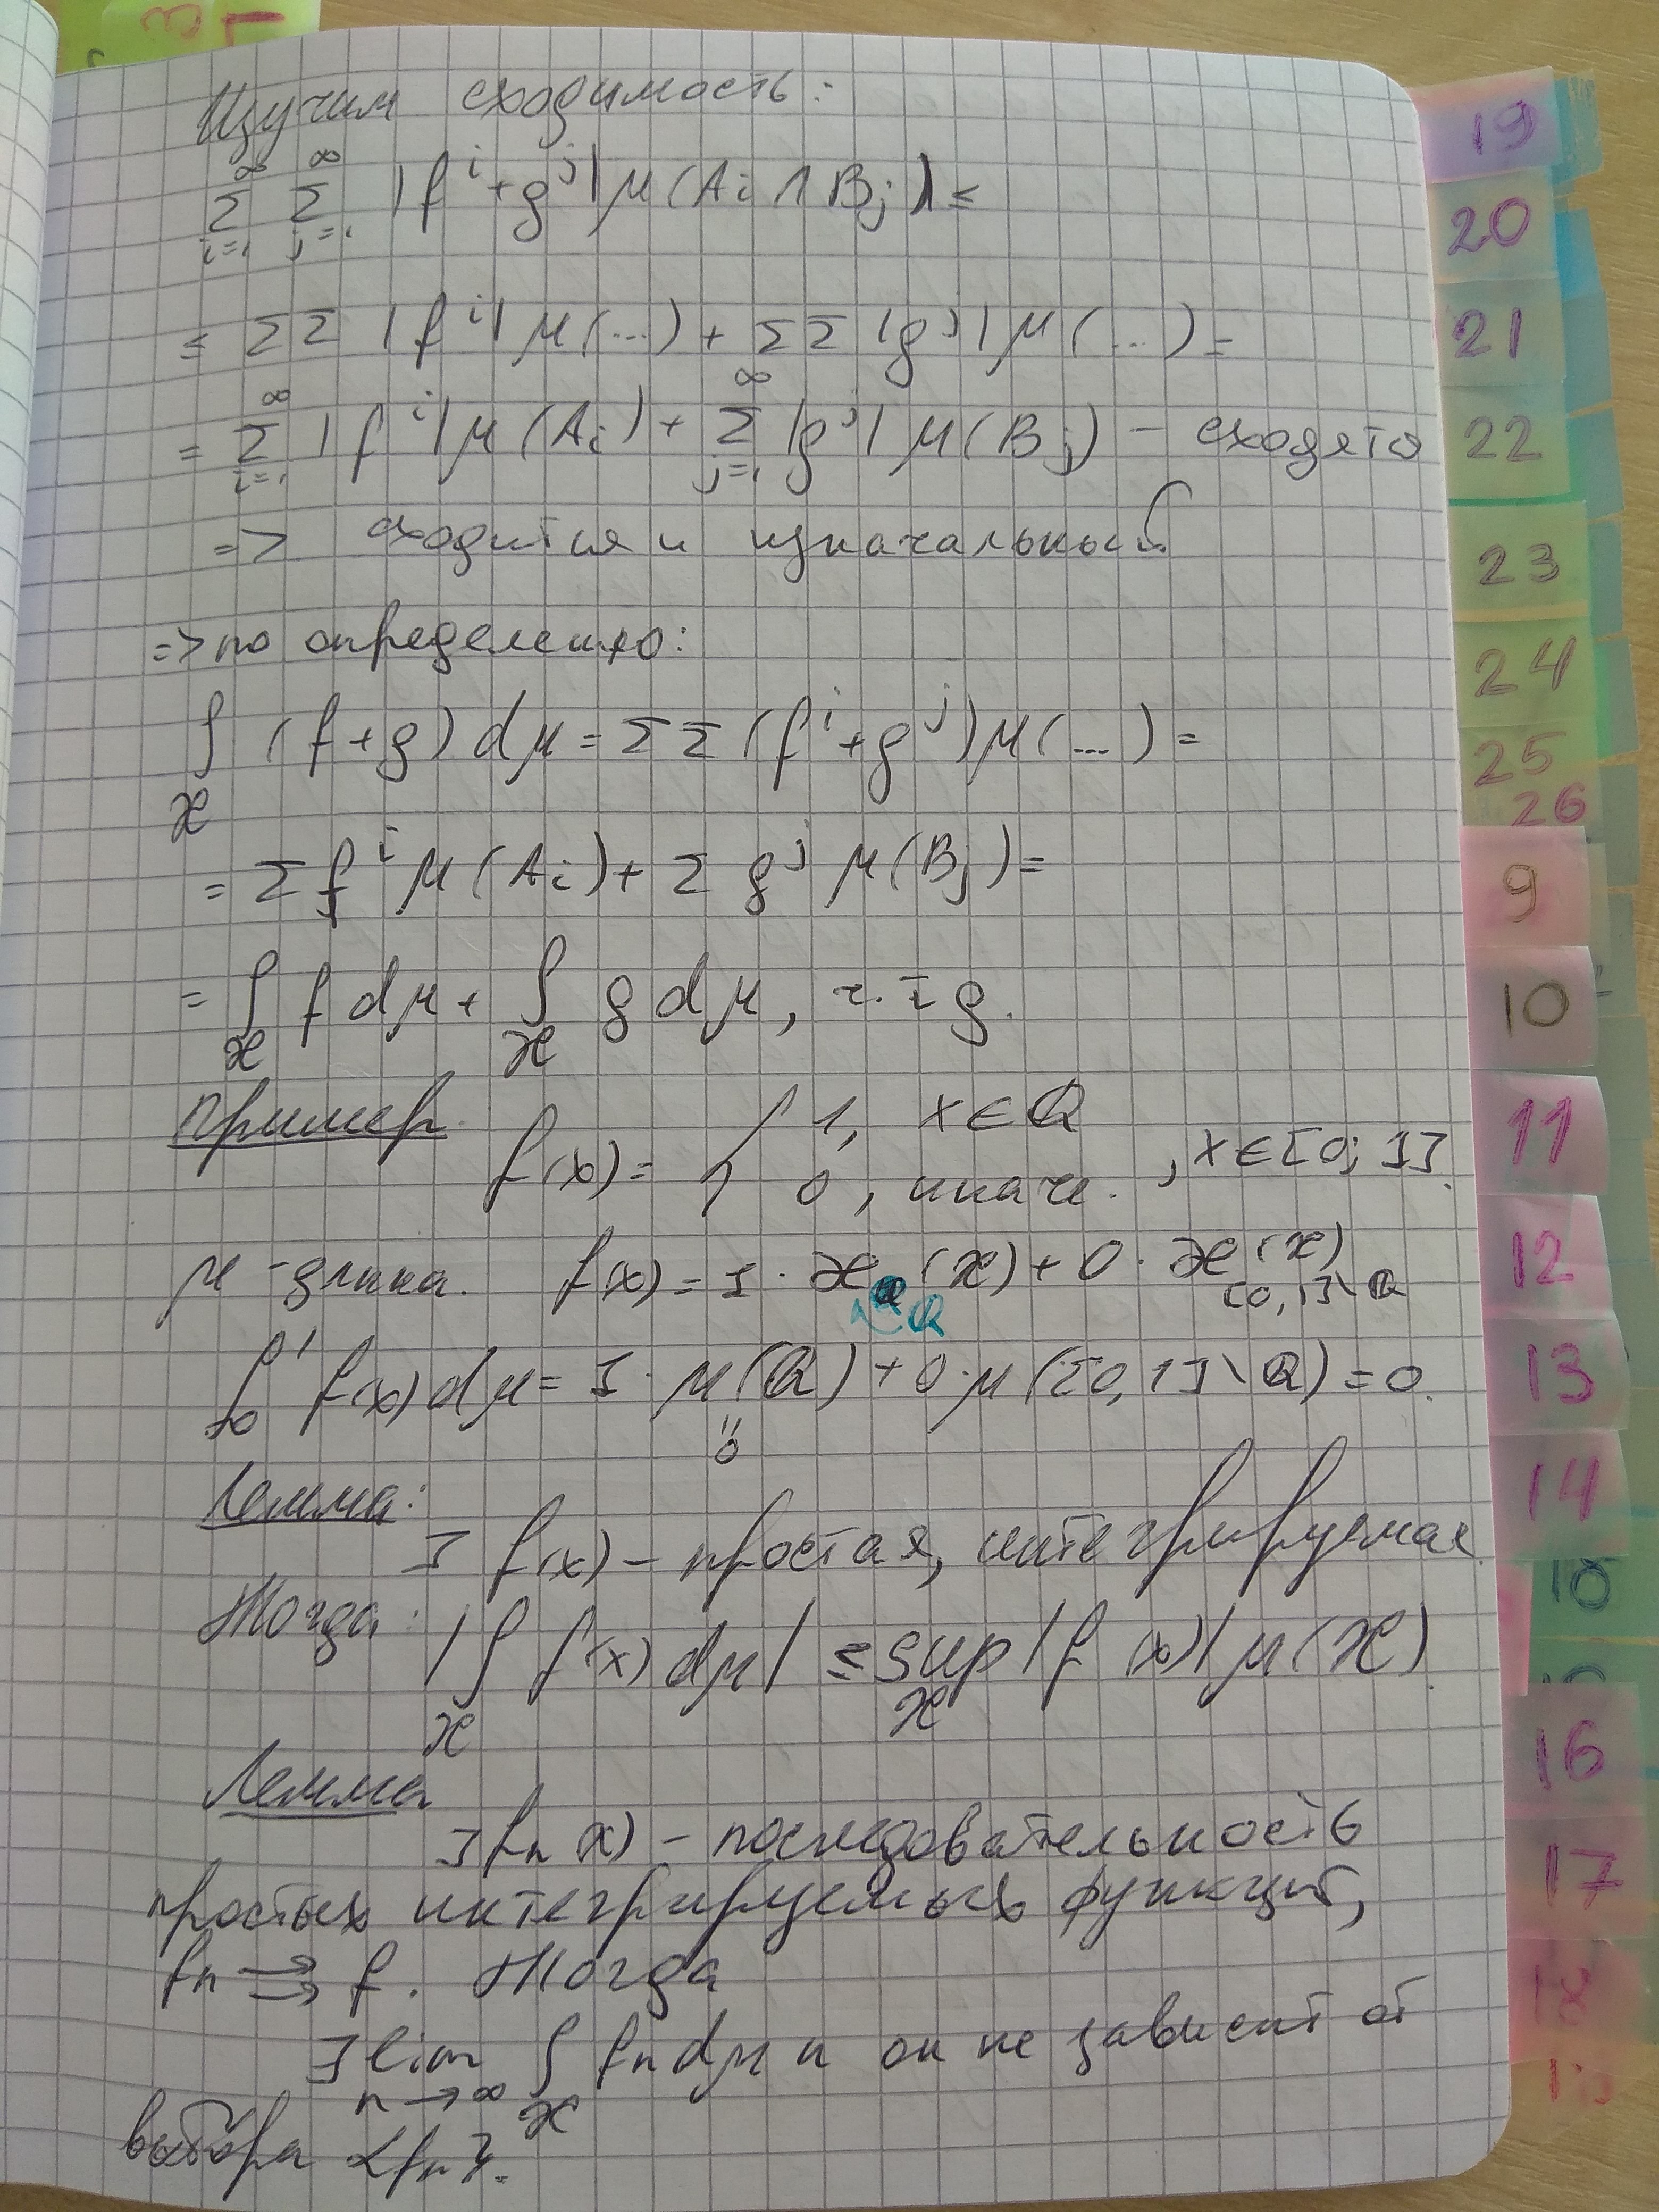 Изучим сходимость:
∞ ∞
Σ Σ |f^i + g^j| μ(A_i ∩ B_j) ≤
i=1 j=1
≤ ΣΣ |f^i| μ(...) + ΣΣ |g^j| μ(...) =
= Σ_{i=1}^∞ |f^i| μ(A_i) + Σ_{j=1}^∞ |g^j| μ(B_j) – сходятся
=> сходится и изначальный
=> по определению:
∫_X (f+g) dμ = ΣΣ (f^i + g^j) μ(...) =
= Σ f^i μ(A_i) + Σ g^j μ(B_j) =
= ∫_X f dμ + ∫_X g dμ, ч.т.д.
Пример. f(x) = { 1, x∈ℚ
0, иначе. , x∈[0; 1].
μ - длина. f(x) = 1 · χ_ℚ(x) + 0 · χ_{[0,1]\ℚ}(x)
∫_0^1 f(x) dμ = 1 · μ(ℚ) + 0 · μ([0,1]\ℚ) = 0.
"
0
Лемма:
∃ f(x) – простая, интегрируемая.
Тогда: |∫_X f(x) dμ| ≤ sup_X |f(x)| μ(X)
Лемма
∃ f_n(x) – последовательность
простых интегрируемых функций,
f_n ⇉ f. Тогда
∃ lim_{n→∞} ∫_X f_n dμ и он не зависит от
выбора {f_n}.
19
20
21
22
23
24
25
26
9
10
11
12
13
14
16
17
18